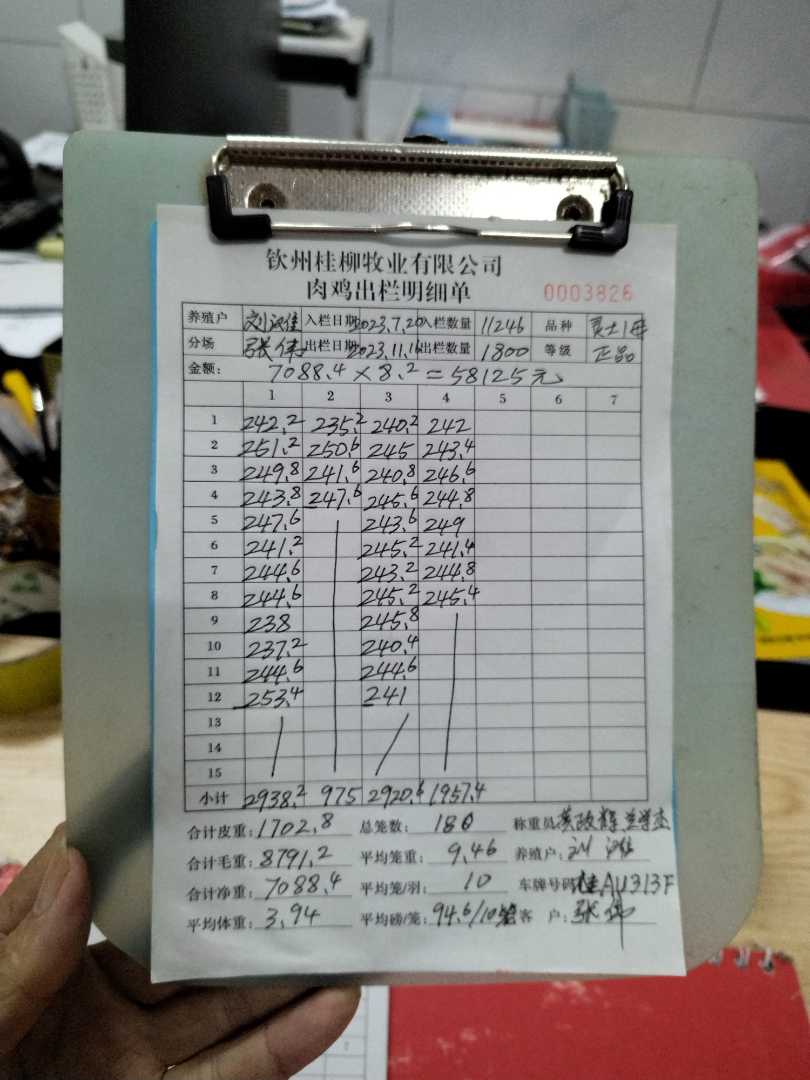 钦州桂柳牧业有限公司
肉鸡出栏明细单 0003826
养殖户 刘汉佳 入栏日期 2023.7.20 入栏数量 11246 品种
分场 张伟 出栏日期 2023.11.16 出栏数量 1800 等级 正品
金额: 7088.4×8.2=58125元
1 2 3 4 5 6 7
1 242.2 235.2 240.2 242
2 251.2 250.6 245 243.4
3 249.8 241.6 240.8 246.6
4 243.8 247.6 245.6 244.8
5 247.6 243.6 249
6 241.2 245.2 241.4
7 244.6 243.2 244.8
8 244.6 245.2 245.4
9 238 245.8
10 237.2 240.4
11 244.6 244.6
12 253.4 241
13
14
15
小计 2938.2 975 2920.6 1957.4
合计皮重: 1702.8 总笼数: 180 称重员
合计毛重: 8791.2 平均笼重: 9.46 养殖户:
合计净重: 7088.4 平均笼/羽: 10 车牌号码 桂AU313F
平均体重: 3.94 平均磅/笼: 94.6/10笼 客 户: 张伟